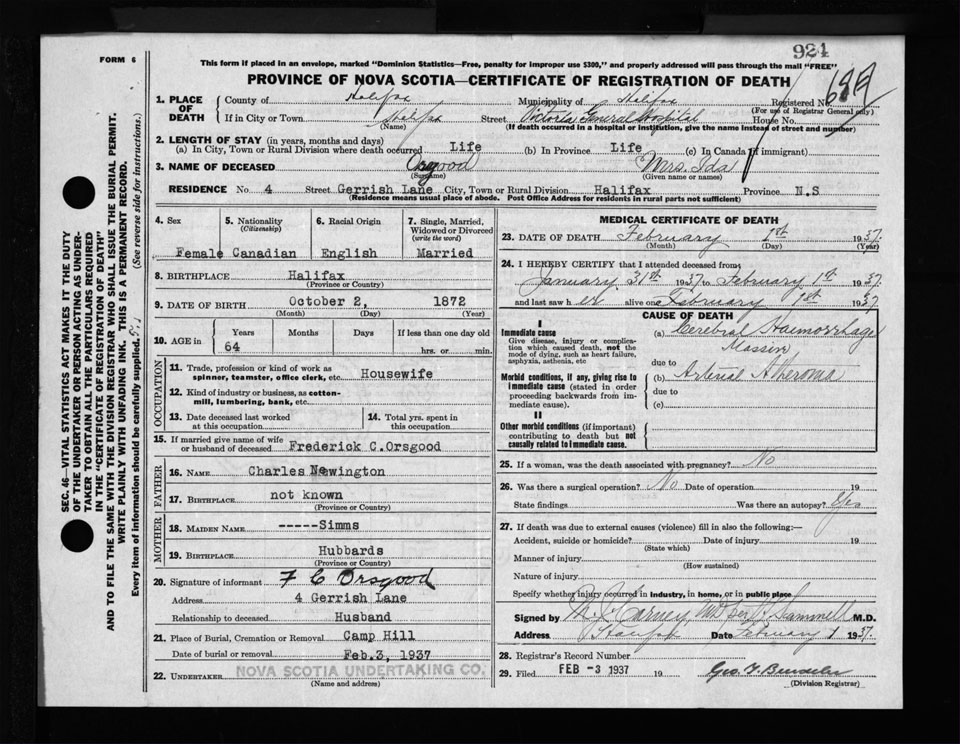 924
FORM 6
This form if placed in an envelope, marked "Dominion Statistics—Free, penalty for improper use $300," and properly addressed will pass through the mail "FREE"
PROVINCE OF NOVA SCOTIA—CERTIFICATE OF REGISTRATION OF DEATH
SEC. 46—VITAL STATISTICS ACT MAKES IT THE DUTY
OF THE UNDERTAKER OR PERSON ACTING AS UNDER-
TAKER TO OBTAIN ALL THE PARTICULARS REQUIRED
IN THE "CERTIFICATE OF REGISTRATION OF DEATH"
AND TO FILE THE SAME WITH THE DIVISION REGISTRAR WHO SHALL ISSUE THE BURIAL PERMIT.
WRITE PLAINLY WITH UNFADING INK. THIS IS A PERMANENT RECORD.
Every item of information should be carefully supplied. (See reverse side for instructions.)
1. PLACE OF DEATH
County of Halifax Municipality of Halifax Registered No.
(For use of Registrar General only)
If in City or Town Halifax Street Victoria General Hospital House No.
(Name) (If death occurred in a hospital or institution, give the name instead of street and number)
2. LENGTH OF STAY (in years, months and days)
(a) In City, Town or Rural Division where death occurred Life (b) In Province Life (c) In Canada (if immigrant)
3. NAME OF DECEASED Orsgood Mrs. Ida
(Surname) (Given name or names)
RESIDENCE No 4 Street Gerrish Lane City, Town or Rural Division Halifax Province N.S
(Residence means usual place of abode. Post Office Address for residents in rural parts not sufficient)
4. Sex 5. Nationality (Citizenship) 6. Racial Origin 7. Single, Married, Widowed or Divorced (write the word)
Female Canadian English Married
8. BIRTHPLACE Halifax
(Province or Country)
9. DATE OF BIRTH October 2, 1872
(Month) (Day) (Year)
10. AGE in Years Months Days If less than one day old
64 hrs. or min.
OCCUPATION
11. Trade, profession or kind of work as spinner, teamster, office clerk, etc. Housewife
12. Kind of industry or business, as cotton-mill, lumbering, bank, etc.
13. Date deceased last worked at this occupation
14. Total yrs. spent in this occupation
15. If married give name of wife or husband of deceased Frederick C.Orsgood
FATHER
16. NAME Charles Newington
17. BIRTHPLACE not known
(Province or Country)
MOTHER
18. MAIDEN NAME -----Simms
19. BIRTHPLACE Hubbards
(Province or Country)
20. Signature of informant F C Orsgood
Address 4 Gerrish Lane
Relationship to deceased Husband
21. Place of Burial, Cremation or Removal Camp Hill
Date of burial or removal Feb.3, 1937
22. UNDERTAKER NOVA SCOTIA UNDERTAKING CO.
(Name and address)
MEDICAL CERTIFICATE OF DEATH
23. DATE OF DEATH February 1st 1937.
(Month) (Day) (Year)
24. I HEREBY CERTIFY that I attended deceased from
January 31st 1937 to February 1st 1937
and last saw her alive on February 1st 1937
CAUSE OF DEATH
I
Immediate cause
Give disease, injury or complication which caused death, not the mode of dying, such as heart failure, asphyxia, asthenia, etc
(a) Cerebral Haemorrhage
due to
Morbid conditions, if any, giving rise to immediate cause (stated in order proceeding backwards from immediate cause).
(b) Arterial Atheroma
due to
(c)
II
Other morbid conditions (if important) contributing to death but not causally related to immediate cause.
25. If a woman, was the death associated with pregnancy? No
26. Was there a surgical operation? No Date of operation 19
State findings Was there an autopsy? Yes
27. If death was due to external causes (violence) fill in also the following:—
Accident, suicide or homicide? Date of injury 19
(State which)
Manner of injury
(How sustained)
Nature of injury
Specify whether injury occurred in industry, in home, or in public place
Signed by M.D.
Address Halifax Date February 1 1937.
28. Registrar's Record Number
29. Filed FEB -3 1937 19
(Division Registrar)